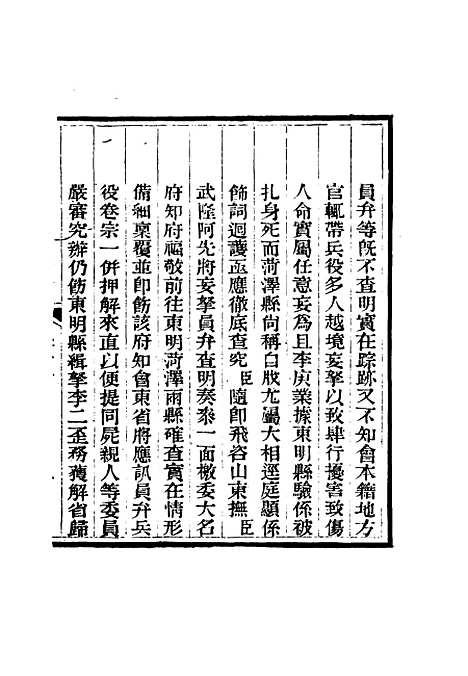 員弁等旣不查明實在踪跡又不知會本籍地方
官輒帶兵役多人越境妄拏以致肆行擾害致傷
人命實屬任意妄爲且李庚業據東明縣驗係被
扎身死而菏澤縣尙稱自戕尤屬大相逕庭顯係
飾詞迴護亟應徹底查究臣隨卽飛咨山東撫臣
武隆阿先將妄拏員弁查明奏叅一面檄委大名
府知府福敬前往東明菏澤兩縣確查實在情形
備細稟覆並卽飭該府知會東省將應訊員弁兵
役卷宗一併押解來直以便提同屍親人等委員
嚴審究辦仍飭東明縣緝拏李二歪務獲解省歸